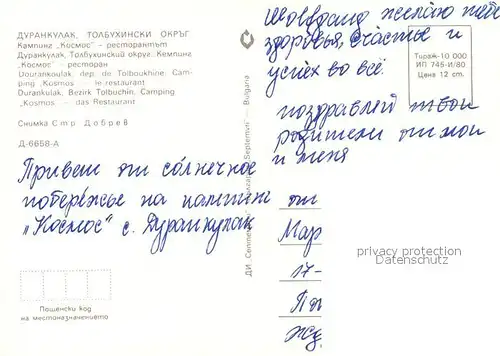 ДУРАНКУЛАК, ТОЛБУХИНСКИ ОКРЪГ
Кампинг „Космос" – ресторантът
Дуранкулак, Толбухинский округ. Кемпинг
„Космос" – ресторан
Dourankoulak, dep. de Tolboukhine. Cam-
ping „Kosmos – le restaurant
Durankulak, Bezirk Tolbuchin. Camping
„Kosmos – das Restaurant
Снимка Стр. Добрев
Д-6658-А
Привет из солнечное
побережье на кампинг
„Космос" с. Дуранкулак
Пощенски код
на местоназначението
Bulgaria
Тираж-10 000
ИП 745-И/80
Цена 12 ст.
желаю тебе
здоровья, счастье и
успех во всё.
поздравляй твои
родители
и меня
Мар
17-
privacy protection
Datenschutz